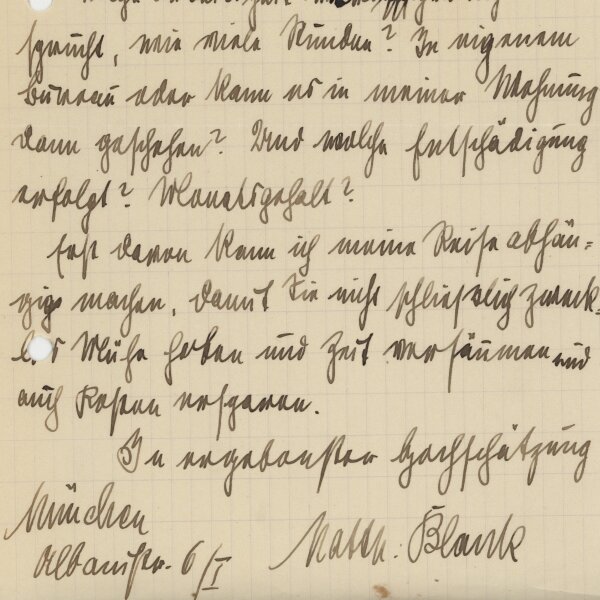 sprucht, wie viele Stunden? In eigenem
Bureau oder kann es in meiner Wohnung
dann geschehen? Und welche Entschädigung
erfolgt? Monatsgehalt?
Erst davon kann ich meine Reise abhän-
gig machen, damit Sie nicht schließlich zweck-
los Mühe haben und Zeit versäumen und
auch Kosten ersparen.
In ergebenster Hochschätzung
München
Albanistr. 6/I
Matth. Blank